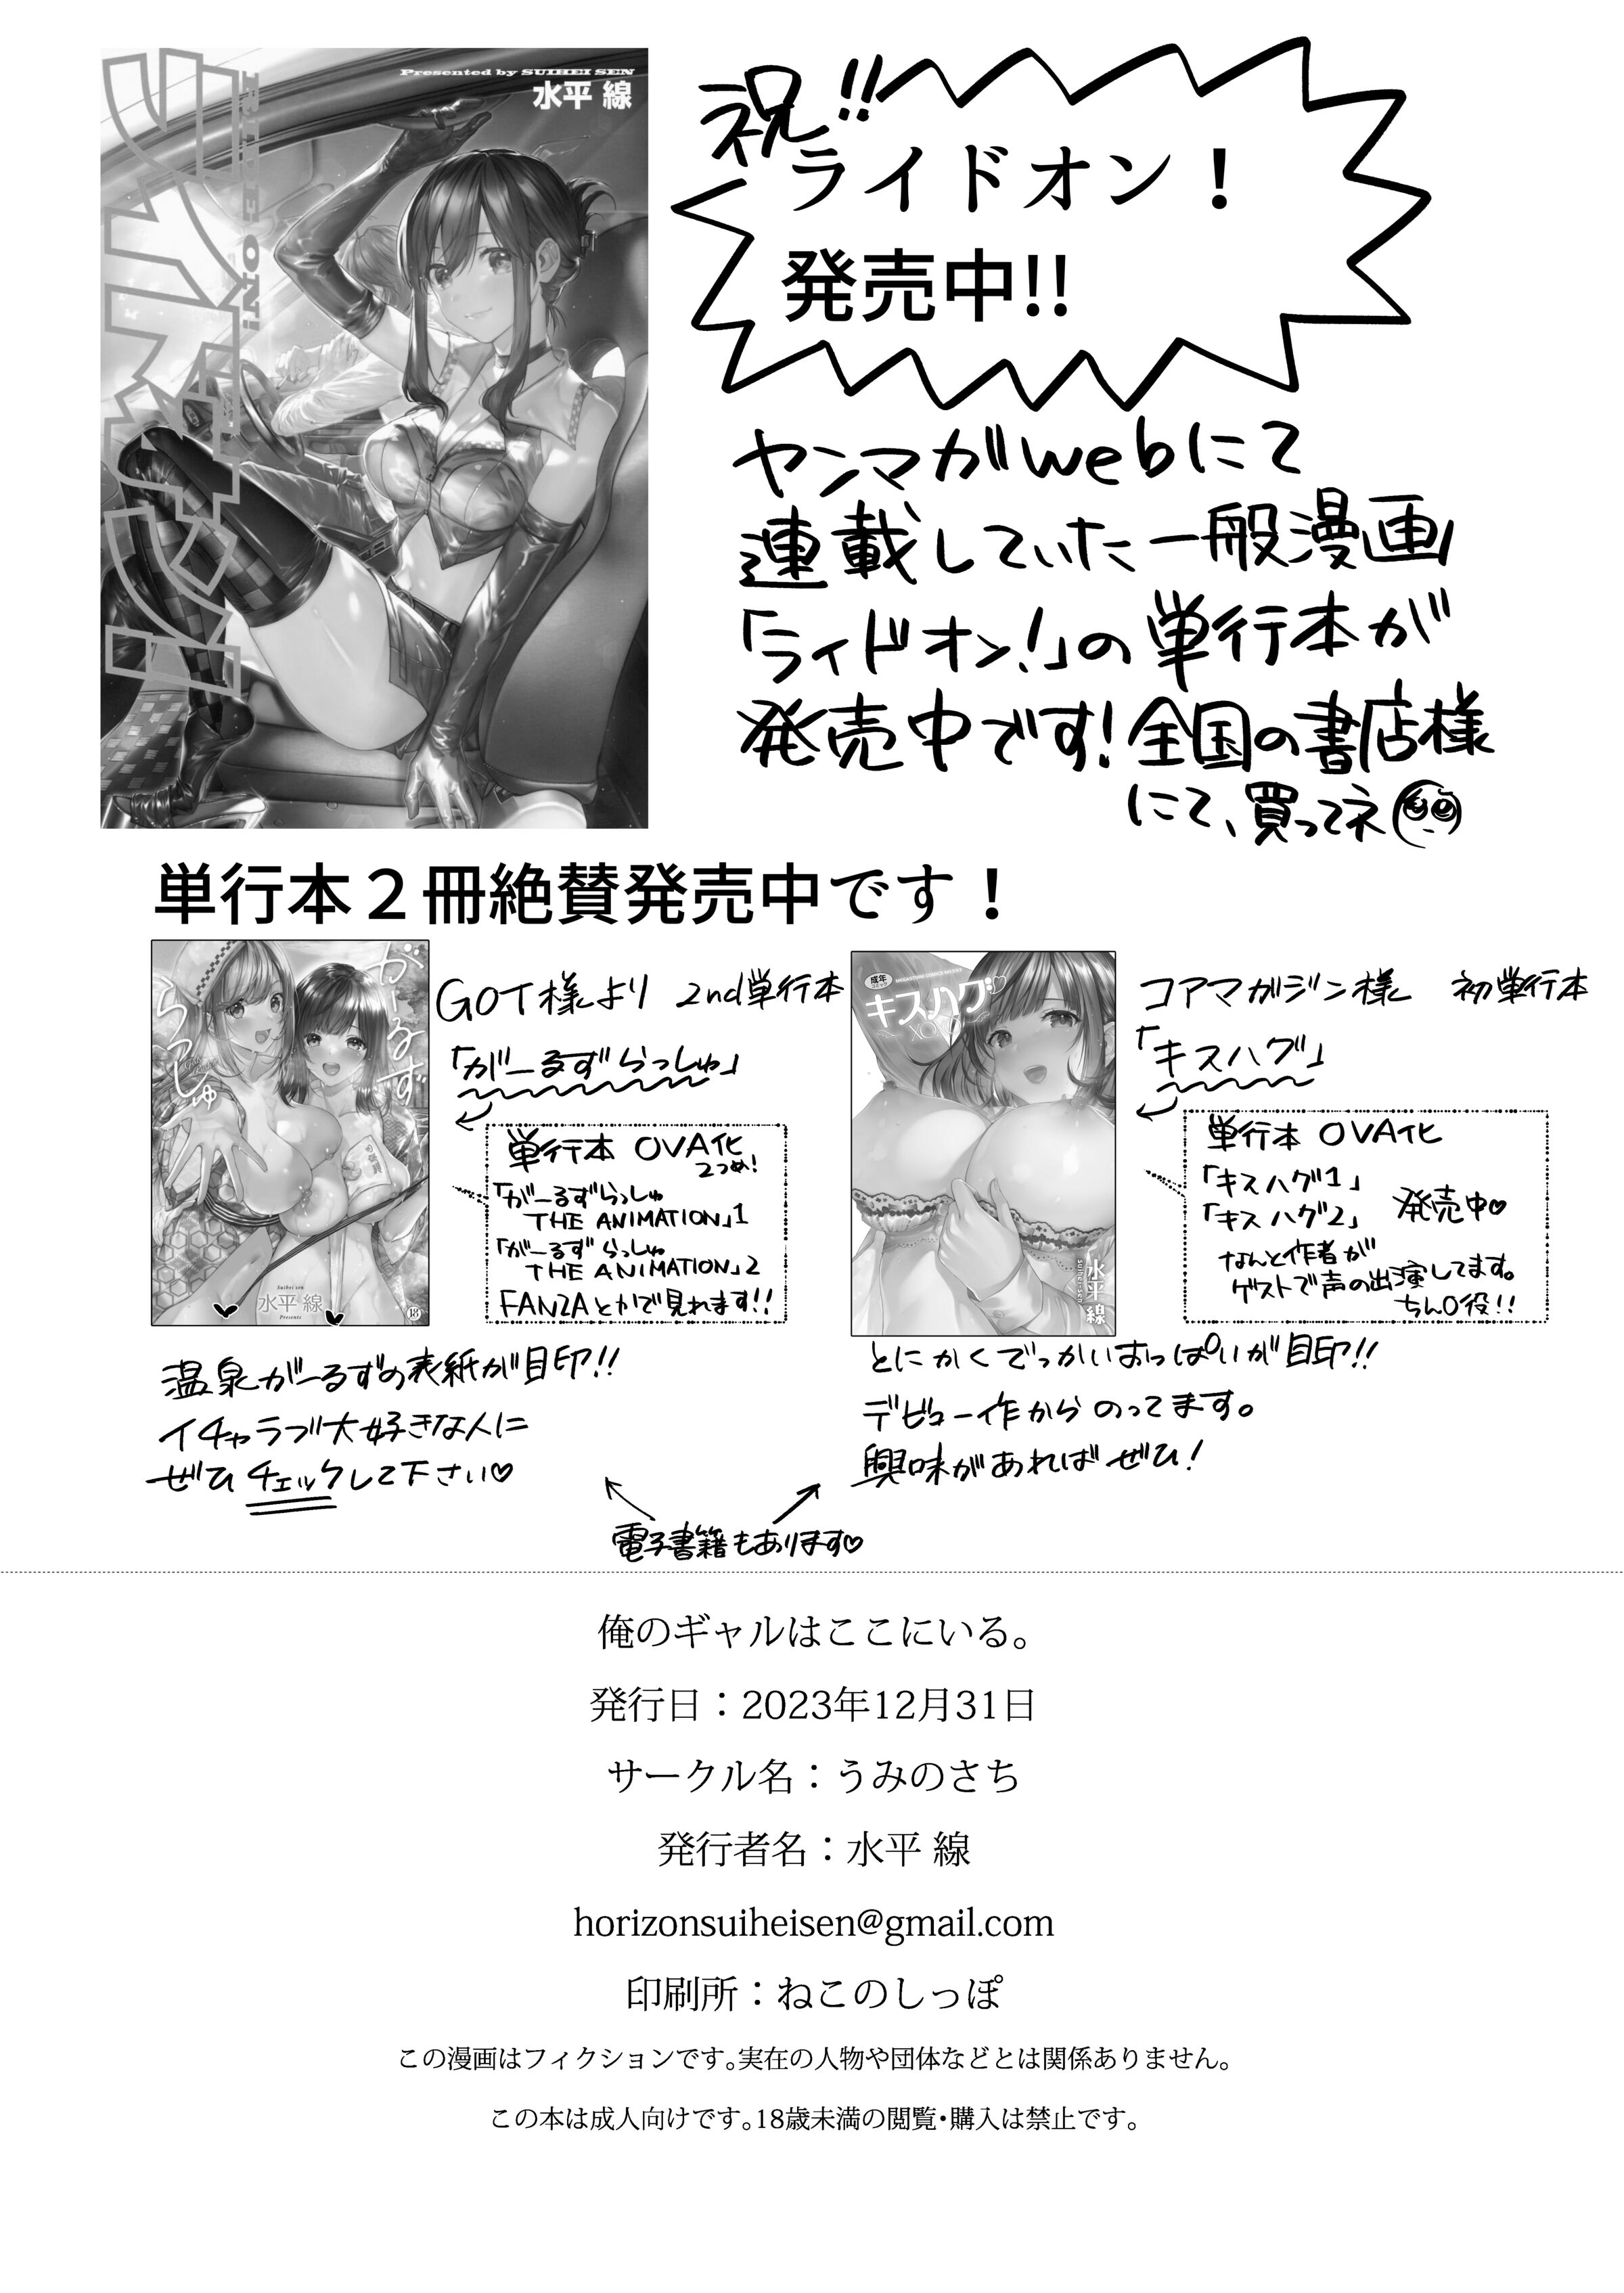 Presented by SUIHEI SEN
水平 線
RIDE ON!
ライドオン!
祝!!
ライドオン！
発売中!!
ヤンマガwebにて
連載していた一般漫画
「ライドオン!」の単行本が
発売中です!全国の書店様
にて、買ってネ
単行本２冊絶賛発売中です！
がーるず
らっしゅ
Suihei sen
水平 線
Presents
18
GOT様より 2nd単行本
「がーるずらっしゅ」
単行本 OVA化
2つめ!
「がーるずらっしゅ
THE ANIMATION」1
「がーるずらっしゅ
THE ANIMATION」2
FANZAとかで見れます!!
温泉がーるずの表紙が目印!!
イチャラブ大好きな人に
ぜひチェックして下さい♡
成年
コミック
キスハグ♡
XOXO
水平線
suiheisen
コアマガジン様 初単行本
「キスハグ」
単行本 OVA化
「キスハグ1」
「キスハグ2」 発売中♡
なんと作者が
ゲストで声の出演してます。
ちん〇役!!
とにかくでっかいおっぱいが目印!!
デビュー作からのってます。
興味があればぜひ!
電子書籍もあります♡
俺のギャルはここにいる。
発行日：2023年12月31日
サークル名：うみのさち
発行者名：水平 線
horizonsuiheisen@gmail.com
印刷所：ねこのしっぽ
この漫画はフィクションです。実在の人物や団体などとは関係ありません。
この本は成人向けです。18歳未満の閲覧・購入は禁止です。